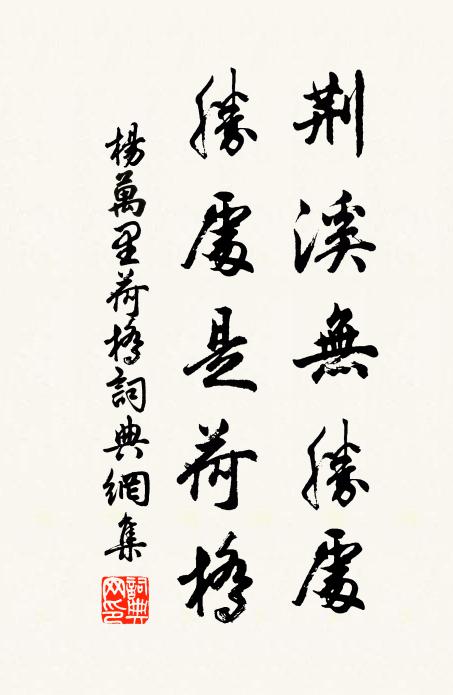 荆溪無勝處
勝處是荷橋
楊萬里荷橋詞典網集
詞典网印